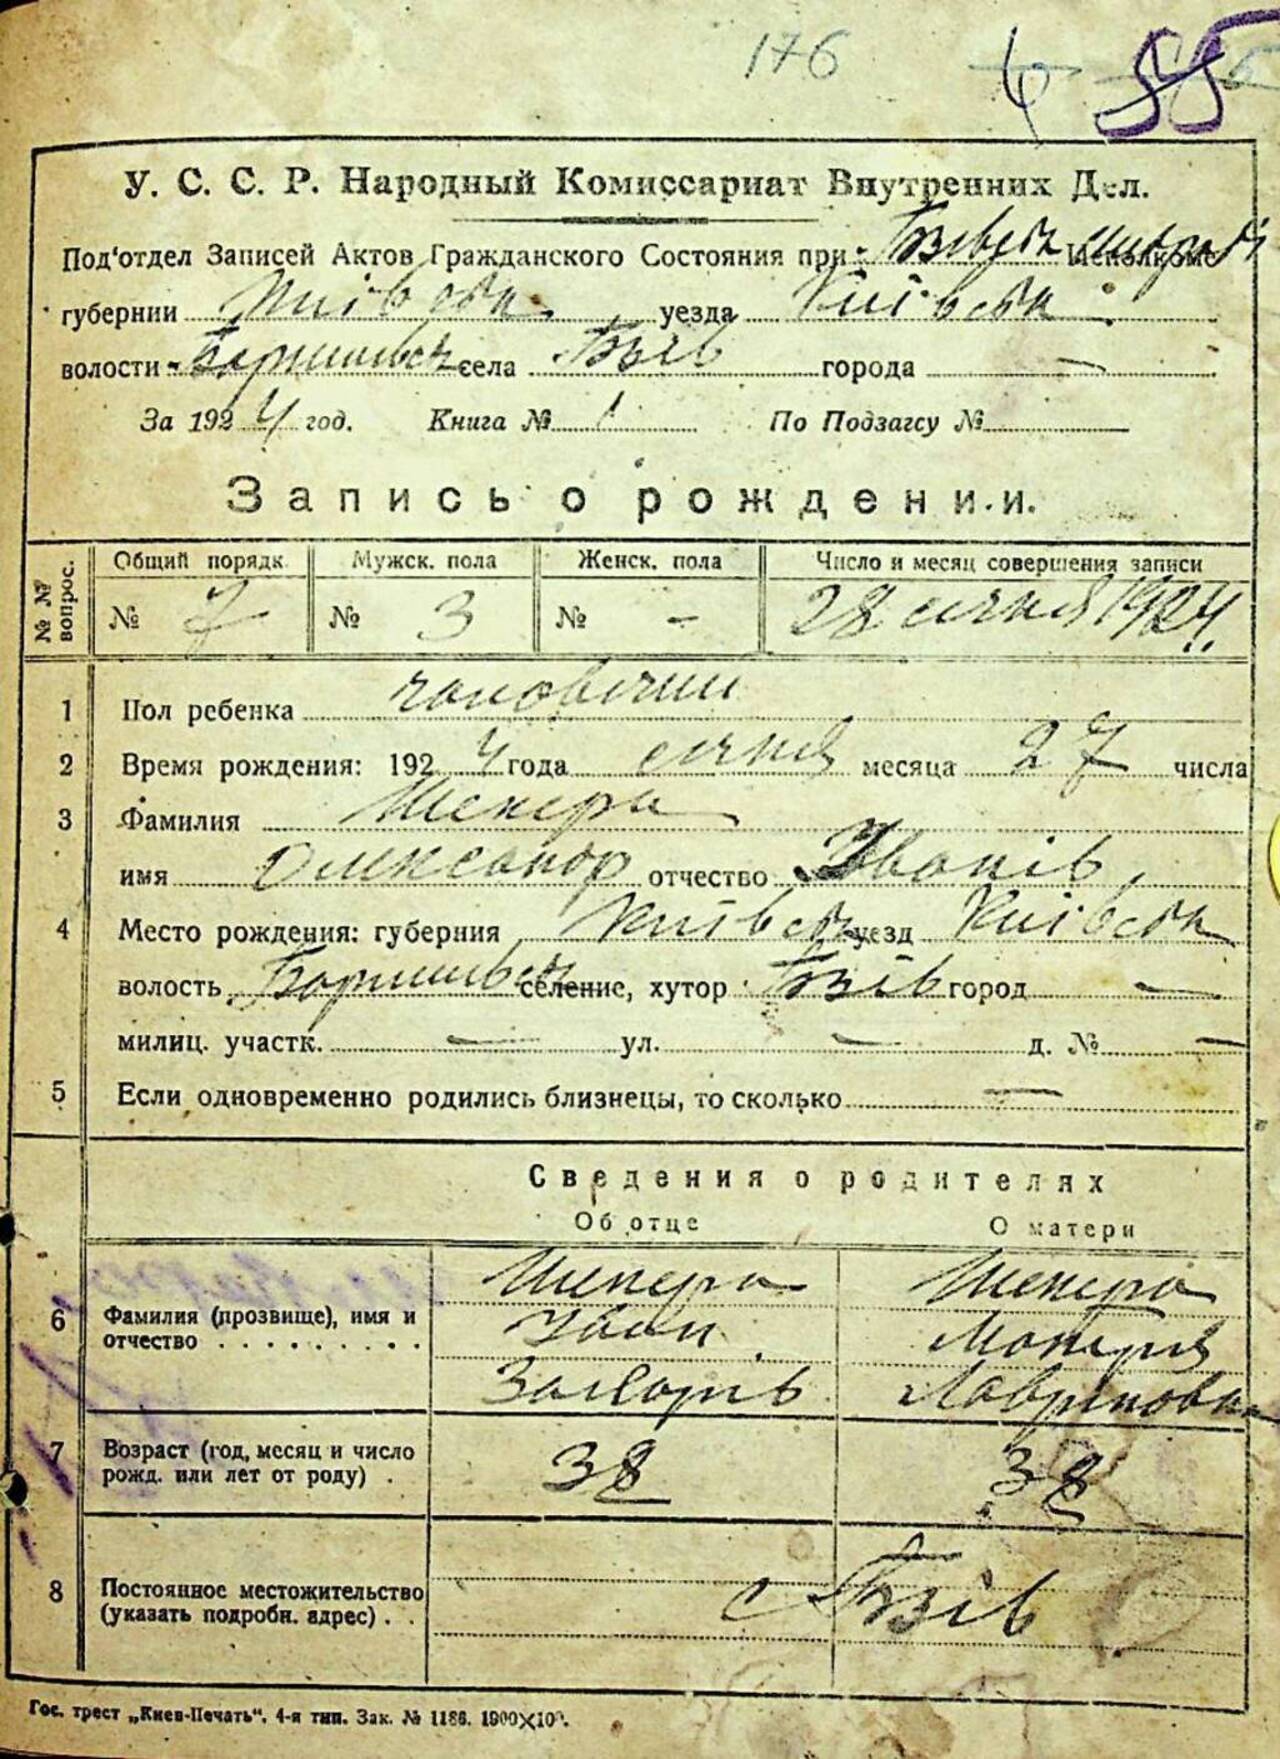 176
У. С. С. Р. Народный Комиссариат Внутренних Дел.
Под'отдел Записей Актов Гражданского Состояния при Исполкоме
губернии Київськ уезда Київськ
волости села Бзів города —
За 1924 год. Книга № 1 По Подзагсу №
Запись о рождении.
№ № вопрос. Общий порядк. Мужск. пола Женск. пола Число и месяц совершения записи
№ 7 № 3 № - 28 січня 1924
1 Пол ребенка чоловічий
2 Время рождения: 1924 года січня месяца 27 числа
3 Фамилия Шекера
имя Олександр отчество Іванів
4 Место рождения: губерния Київськ уезд Київськ
волость селение, хутор Бзів город —
милиц. участк. — ул. — д. № —
5 Если одновременно родились близнецы, то сколько —
Сведения о родителях
Об отце О матери
6 Фамилия (прозвище), имя и отчество
Шекера Шекера
Іван
Захарів
7 Возраст (год, месяц и число рожд. или лет от роду) . 38 38
8 Постоянное местожительство (указать подробн. адрес) . . с Бзів
Гос. трест „Киев-Печать". 4-я тип. Зак. № 1186.